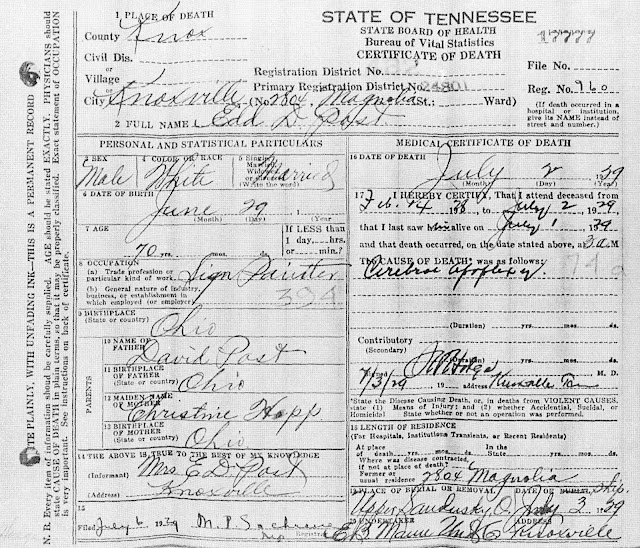 1 PLACE OF DEATH
STATE OF TENNESSEE
County Knox
STATE BOARD OF HEALTH
Bureau of Vital Statistics
CERTIFICATE OF DEATH
17777
Civil Dis.
or
Village
or
City Knoxville (No 2804 Magnolia St.; Ward)
Registration District No.
File No.
Primary Registration District No. 24801
Reg. No. 960
(If death occurred in a hospital or institution, give its NAME instead of street and number.)
2 FULL NAME Edd D Post
PERSONAL AND STATISTICAL PARTICULARS
3 SEX
Male
4 COLOR OR RACE
White
5 Single, Married, Widowed, or Divorced
Married
(Write the word)
6 DATE OF BIRTH
June 29
(Month) (Day) (Year)
7 AGE
70 yrs. mos. ds.
If LESS than
1 day, hrs.
or min.?
8 OCCUPATION
(a) Trade profession or
particular kind of work Sign Painter
(b) General nature of industry,
business, or establishment in
which employed (or employer)
394
9 BIRTHPLACE
(State or country)
Ohio
PARENTS
10 NAME OF
FATHER
David Post
11 BIRTHPLACE
OF FATHER
(State or country)
Ohio
12 MAIDEN NAME
OF MOTHER
Christine Hopp
13 BIRTHPLACE
OF MOTHER
(State or country)
Ohio
14 THE ABOVE IS TRUE TO THE BEST OF MY KNOWLEDGE
(Informant) Mrs E D Post
(Address) Knoxville
15
Filed July 6 1929
Registrar
MEDICAL CERTIFICATE OF DEATH
16 DATE OF DEATH
July 2 1929
(Month) (Day) (Year)
17 I HEREBY CERTIFY, That I attended deceased from
Feb. 14 28, to July 2 1929
that I last saw him alive on July 1 1929
and that death occurred, on the date stated above, at 3 a M
The CAUSE OF DEATH was as follows:
Cerebral apoplexy
(Duration) yrs. mos. ds.
Contributory
(Secondary)
(Duration) yrs. mos. ds.
M. D.
7/3/29 19 address Knoxville Ten
*State the Disease Causing Death, or, in deaths from VIOLENT CAUSES,
state (1) Means of Injury; and (2) whether Accidental, Suicidal, or
Homicidal. State whether or not an operation was performed.
18 LENGTH OF RESIDENCE
(For Hospitals, Institutions Transients, or Recent Residents)
At place In the
of death yrs. mos. ds. State yrs. mos. ds.
Where was disease contracted,
if not at place of death?
Former or
usual residence 2804 Magnolia
19 PLACE OF BURIAL OR REMOVAL DATE OF BURIAL Ship.
Upper Sandusky O. July 3 1929
20 UNDERTAKER ADDRESS
E B Mann Und Co Knoxville
N. B. Every item of information should be carefully supplied. AGE should be stated EXACTLY. PHYSICIANS should
state CAUSE OF DEATH in plain terms, so that it may be properly classified. Exact statement of OCCUPATION
is very important. See instructions on back of certificate.
PLAINLY, WITH UNFADING INK—THIS IS A PERMANENT RECORD